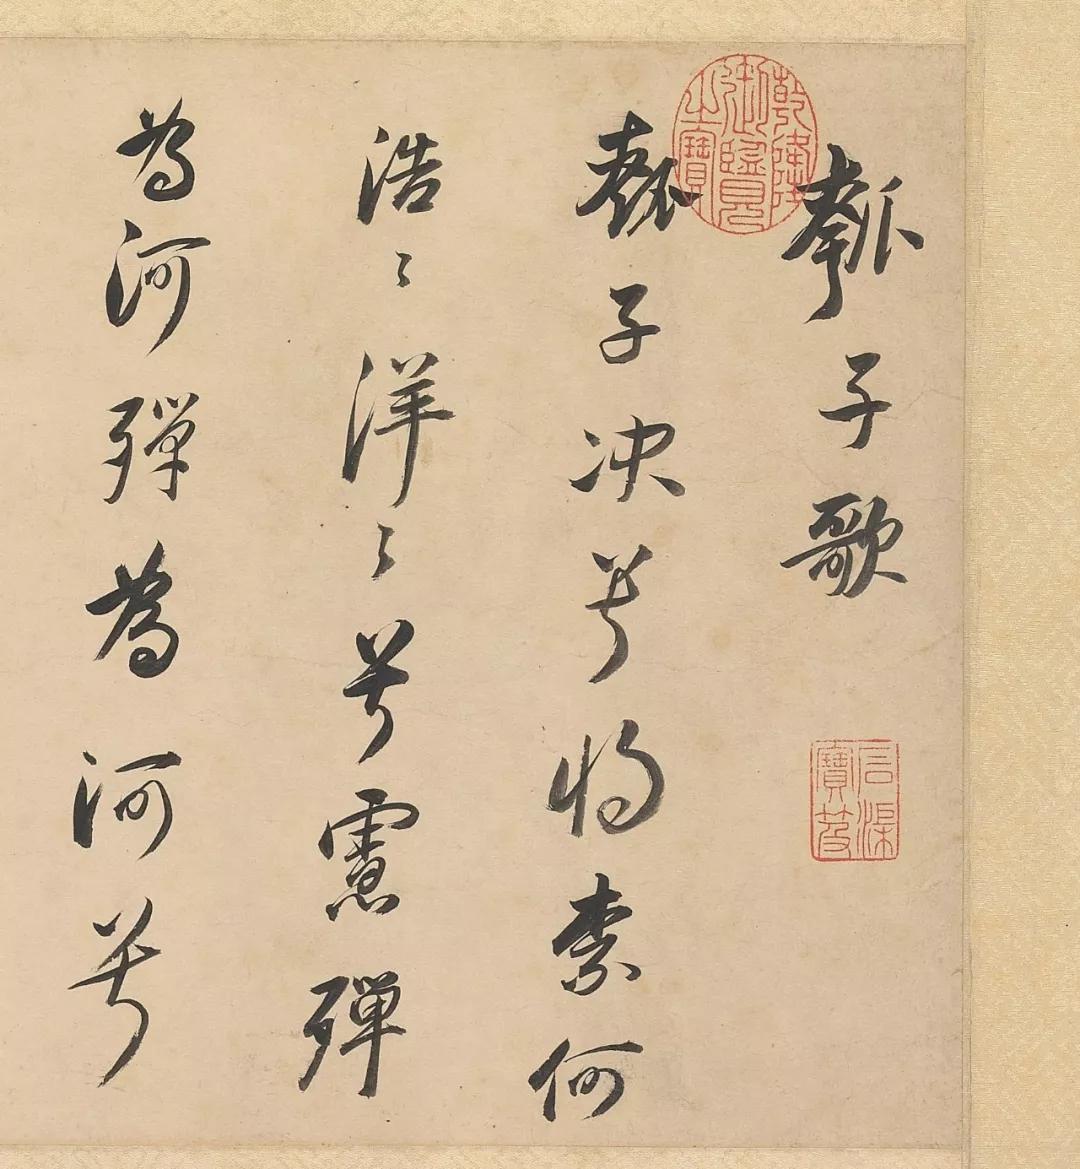 瓠子歌
瓠子决兮将柰何
浩〻洋〻兮慮殫
為河殫為河兮
乾隆御覽之寶
石渠寶笈